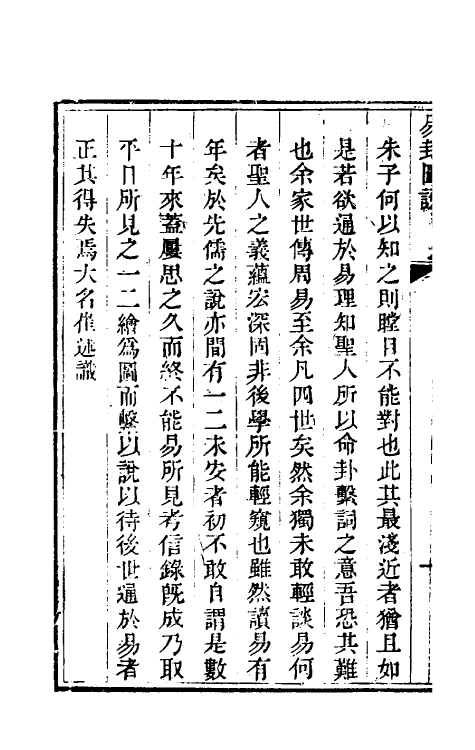 易卦圖說
朱子何以知之則瞠目不能對也此其最淺近者猶且如
是若欲通於易理知聖人所以命卦繫詞之意吾恐其難
也余家世傳周易至余凡四世矣然余獨未敢輕談易何
者聖人之義蘊宏深固非後學所能輕窺也雖然讀易有
年矣於先儒之說亦間有一二未安者初不敢自謂是數
十年來蓋屢思之久而終不能易所見考信錄旣成乃取
平日所見之一二繪爲圖而繫以說以待後世通於易者
正其得失焉大名崔述識